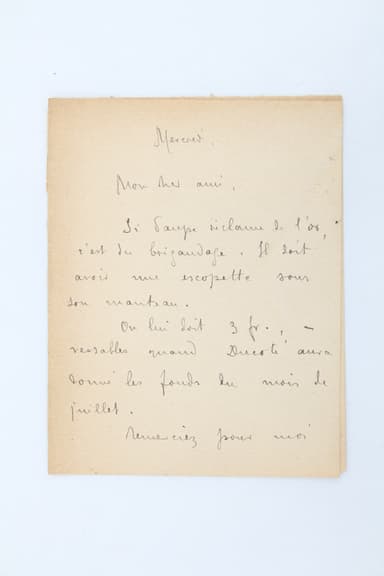 Mercredi.
Mon cher ami,
Si Fampe réclame de l'or,
c'est du brigandage. Il doit
avoir une escopette sous
son manteau.
On lui doit 3 fr., –
versables quand Ducoté aura
donné les fonds du mois de
juillet.
Remerciez pour moi